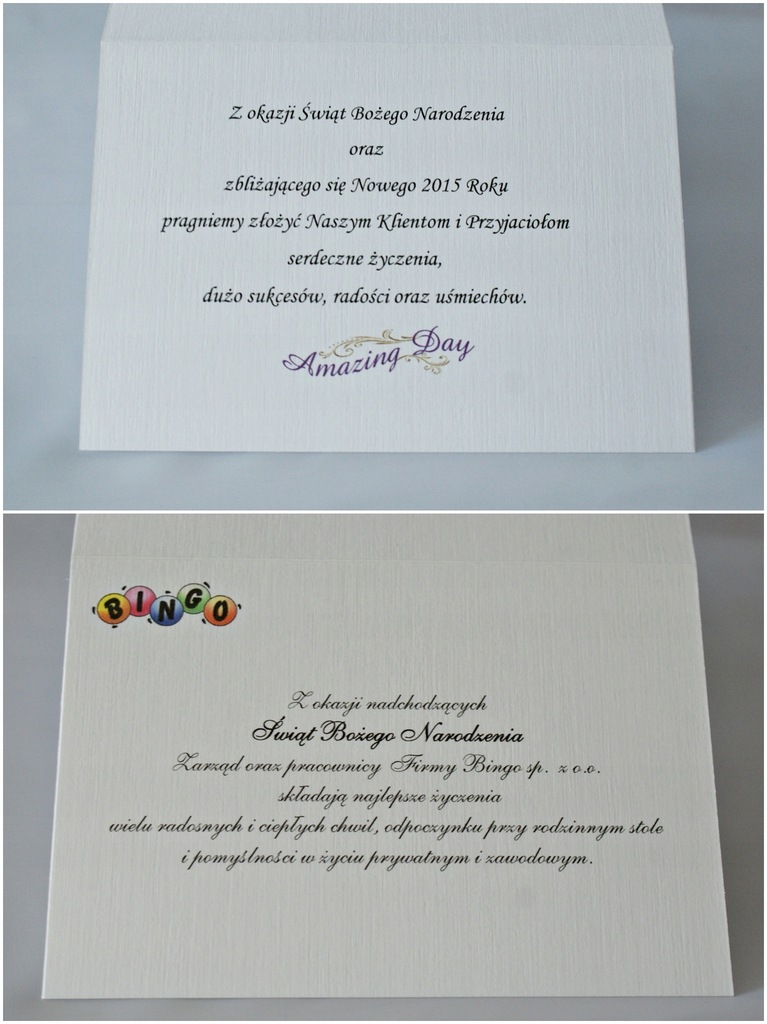 Z okazji Świąt Bożego Narodzenia
oraz
zbliżającego się Nowego 2015 Roku
pragniemy złożyć Naszym Klientom i Przyjaciołom
serdeczne życzenia,
dużo sukcesów, radości oraz uśmiechów.
Amazing Day
BINGO
Z okazji nadchodzących
Świąt Bożego Narodzenia
Zarząd oraz pracownicy Firmy Bingo sp. z o.o.
składają najlepsze życzenia
wielu radosnych i ciepłych chwil, odpoczynku przy rodzinnym stole
i pomyślności w życiu prywatnym i zawodowym.